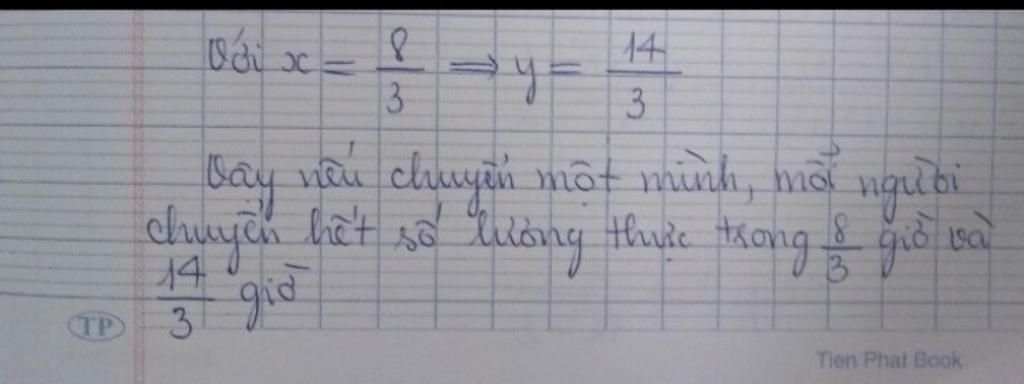 Với x = 8/3 ⟹ y = 14/3
Vậy nếu chuyển một mình, mỗi người
chuyển hết số lương thực trong 8/3 giờ và
14/3 giờ
TP
Tien Phat Book